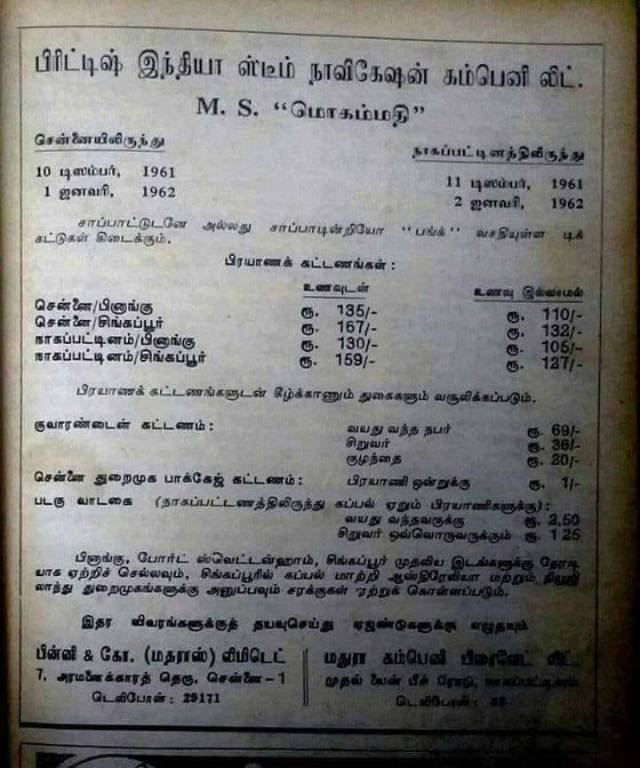 பிரிட்டிஷ் இந்தியா ஸ்டீம் நாவிகேஷன் கம்பெனி லிட்.
M. S. “மொகம்மதி”
சென்னையிலிருந்து
10 டிஸம்பர், 1961
1 ஜனவரி, 1962
நாகப்பட்டினத்திலிருந்து
11 டிஸம்பர், 1961
2 ஜனவரி, 1962
சாப்பாட்டுடனே அல்லது சாப்பாடின்றியோ “பங்க்” வசதியுள்ள டிக்
கட்டுகள் கிடைக்கும்.
பிரயாணக் கட்டணங்கள் :
உணவுடன் உணவு இல்லாமல்
சென்னை/பினாங்கு ரூ. 135/- ரூ. 110/-
சென்னை/சிங்கப்பூர் ரூ. 167/- ரூ. 132/-
நாகப்பட்டினம்/பினாங்கு ரூ. 130/- ரூ. 105/-
நாகப்பட்டினம்/சிங்கப்பூர் ரூ. 159/- ரூ. 127/-
பிரயாணக் கட்டணங்களுடன் கீழ்க்காணும் துகைகளும் வசூலிக்கப்படும்.
குவாரண்டைன் கட்டணம் : வயது வந்த நபர் ரூ. 69/-
சிறுவர் ரூ. 36/-
குழந்தை ரூ. 20/-
சென்னை துறைமுக பாக்கேஜ் கட்டணம் : பிரயாணி ஒன்றுக்கு ரூ. 1/-
படகு வாடகை (நாகப்பட்டணத்திலிருந்து கப்பல் ஏறும் பிரயாணிகளுக்கு) :
வயது வந்தவருக்கு ரூ. 2.50
சிறுவர் ஒவ்வொருவருக்கும் ரூ. 1 25
பினாங்கு, போர்ட் ஸ்வெட்டன்ஹாம், சிங்கப்பூர் முதலிய இடங்களுக்கு நேரடி
யாக ஏற்றிச் செல்லவும், சிங்கப்பூரில் கப்பல் மாற்றி ஆஸ்திரேலியா மற்றும் நியூஜி
லாந்து துறைமுகங்களுக்கு அனுப்பவும் சரக்குகள் ஏற்றுக் கொள்ளப்படும்.
இதர விவரங்களுக்குத் தயவுசெய்து ஏஜண்டுகளுக்கு எழுதவும்
பின்னி & கோ. (மதராஸ்) லிமிடெட்
7, அரமனைக்காரத் தெரு, சென்னை-1
டெலிபோன் : 29171
மதுரா கம்பெனி பிரைவேட் லிட்.
முதல் லைன் பீச் ரோடு, நாகப்பட்டினம்
டெலிபோன் :